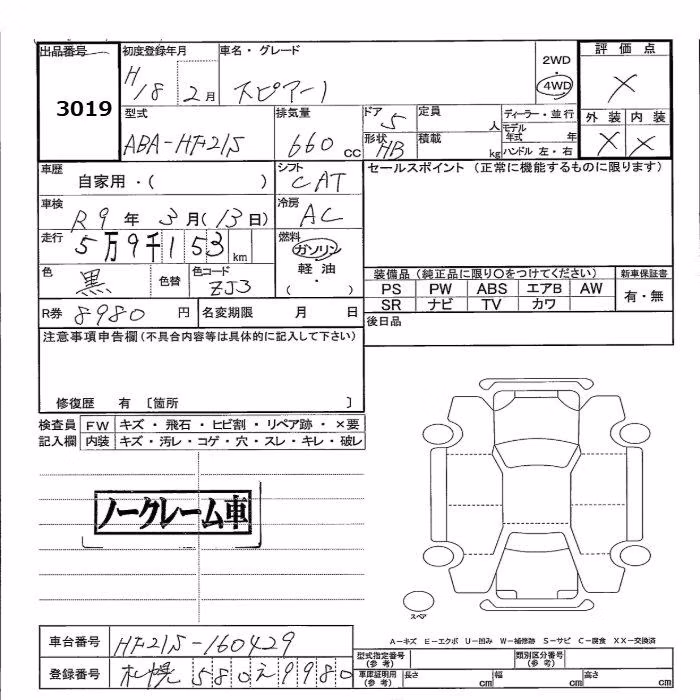 出品番号
3019
初度登録年月
H18 2月
車名・グレード
スピアーノ
2WD
4WD
評価点
X
外装 内装
X X
型式
ABA-HF21S
排気量
660 cc
ドア
5
形状
HB
定員
人
積載
kg
ディーラー・並行
モデル年式 年
ハンドル 左・右
車歴
自家用・( )
シフト
CAT
セールスポイント (正常に機能するものに限ります)
車検
R9年3月(13日)
冷房
AC
走行
5万9千153km
燃料
ガソリン
軽油
( ・ )
色
黒
色替
色コード
ZJ3
装備品 (純正品に限り○をつけてください)
新車保証書
PS PW ABS エアB AW
有・無
SR ナビ TV カワ
R券 8980 円
名変期限 月 日
後日品
注意事項申告欄 (不具合内容等は具体的に記入して下さい)
修復歴 有 〔箇所 〕
検査員記入欄
FW キズ・飛石・ヒビ割・リペア跡・×要
内装 キズ・汚レ・コゲ・穴・スレ・キレ・破レ
ノークレーム車
スペア
A-キズ E-エクボ U-凹み W-補修跡 S-サビ C-腐食 XX-交換済
車台番号 HF21S-160429
型式指定番号(参考)
類別区分番号(参考)
登録番号 札幌 580 え 9980
車庫証明用(参考)
長さ cm
幅 cm
高さ cm